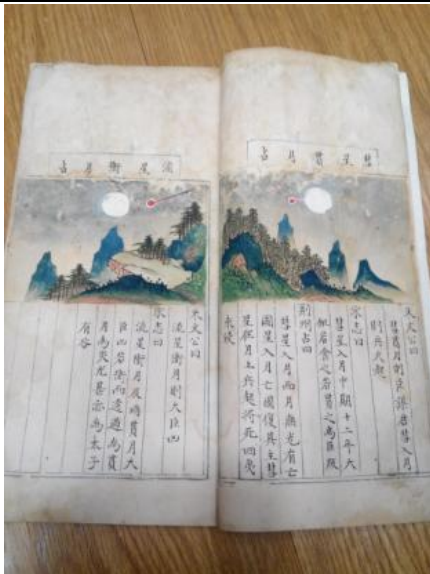 彗星貫月占
朱文公曰
彗星貫月則臣謀君彗入月
則兵大起
宋志曰
彗星入月中期十二年大
飢若食之若貫之為臣叛
荊州占曰
彗星入月而月無光有亡
國星入月亡國復其主彗
星犯月主兵起將死四夷
來侵
流星衝月占
朱文公曰
流星衝月則大臣凶
宋志曰
流星衝月及貫月大
臣凶若衝而遊為貫
月為災尤甚亦為太子
有咎